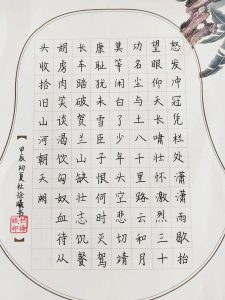 怒发冲冠凭栏处潇潇雨歇抬
望眼仰天长啸壮怀激烈三十
功名尘与土八千里路云和月
莫等闲白了少年头空悲切靖
康耻犹未雪臣子恨何时灭驾
长车踏破贺兰山缺壮志饥餐
胡虏肉笑谈渴饮匈奴血待从
头收拾旧山河朝天阙
【甲辰初夏杜徐曦书